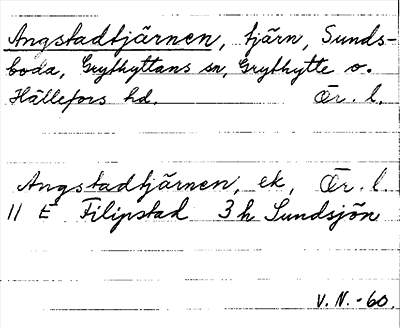 Angstadtjärnen, tjärn, Sunds-
boda, Grythyttans sn, Grythytte o.
Hällefors hd. Ör. l.
Angstadtjärnen, ek, Ör. l.
11 E Filipstad 3 h Sundsjön
V. N. -60.